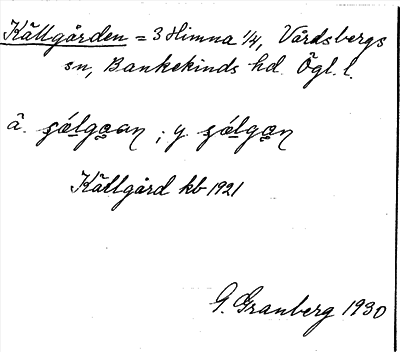 Källgården = 3 Himna 1/4, Vårdsbergs
sn, Bankekinds hd. Ögl. l.
ä. ; y.
Källgård kb 1921
G. Granberg 1930